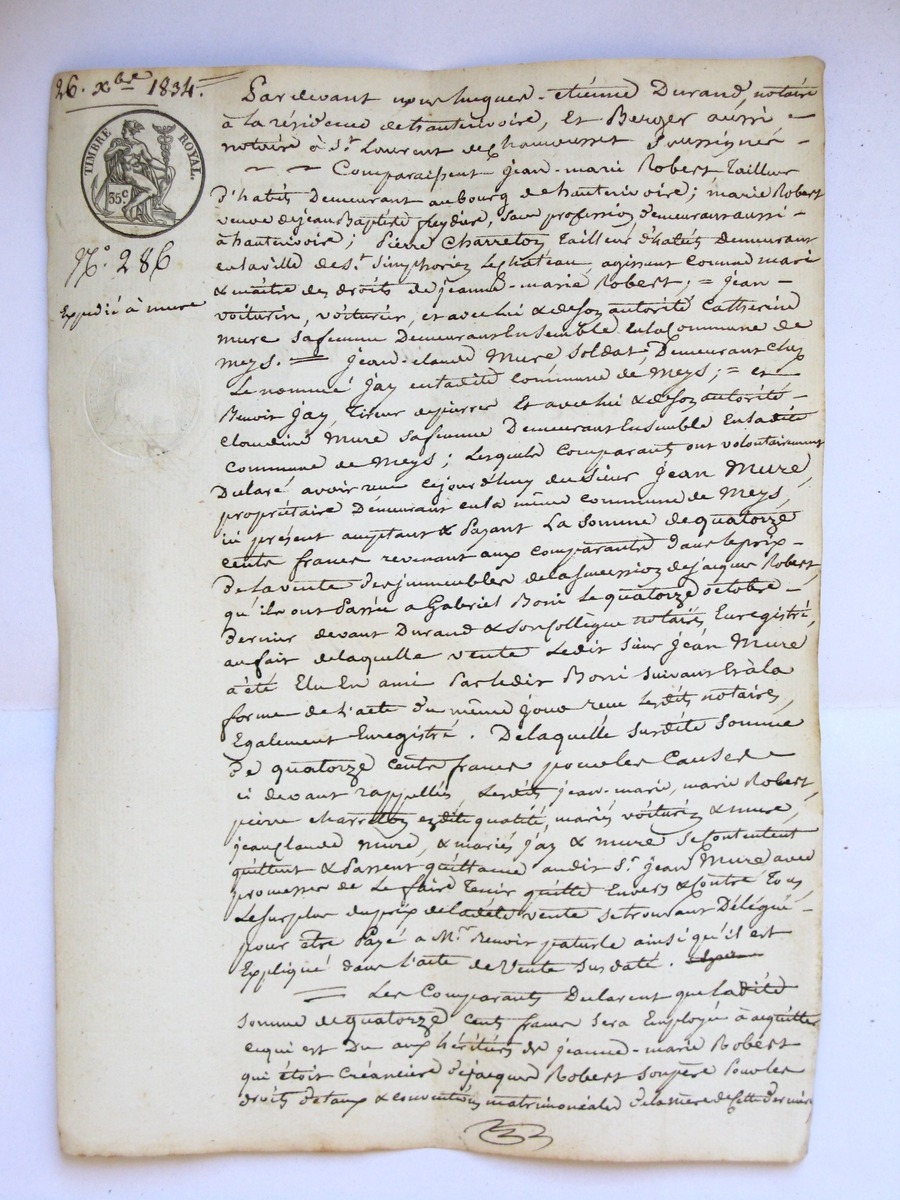 26. xbre 1834.
TIMBRE ROYAL.
35c
N.° 286
Expedié à mure
Pardevant nous hugues-etienne Durand, notaire
à la résidence de hauterivoire, Et Berger aussi
notaire à St. Laurent de Chamousset Soussignés
Comparaissent jean-marie Robert Tailleur
d'habits Demeurant au bourg de hauterivoire; marie Robert
veuve de jean Baptiste, Sans profession demeurant aussi
à hauterivoire; Pierre Charreton Tailleur d'habits Demeurant
en la ville de St. Simphorien Le château, agissant Comme mari
& maître des droits de jeanne-marie Robert; = jean
voiturin, voiturier, et avec lui & de son autorité Catherine
mure sa femme Demeurant Ensemble en la Commune de
meys. = jean-claude Mure Soldat, Demeurant chez
Le nommé jay en ladite commune de Meys; = et
Benoit Jay, Tireur de pierres Et avec lui & de son autorité
claudine Mure sa femme Demeurant Ensemble En ladite
Commune de Meys; Lesquels Comparants ont volontairement
Déclaré avoir reçu cejourd'huy du Sieur Jean Mure
propriétaire Demeurant en la même commune de Meys,
ici présent acceptant & Payant La somme de quatorze
cents francs revenant aux comparants dans le prix
de la vente des immeubles de la succession de jacques Robert,
qu'ils ont Passée a Gabriel Boni Le quatorze octobre
dernier devant Durand & son collègue notaires Enregistré,
au fait de laquelle vente Ledit Sieur Jean Mure
a été Elu En ami Par ledit Boni suivant Et à la
forme de l'acte du même jour reçu Lesdits notaires,
Egalement Enregistré. De laquelle susdite Somme
de quatorze cents francs pour les Causes
ci devant rappellés, Lesdits jean-marie, marie Robert,
pierre charreton esdite qualité, mariés voiturin & mure,
jean claude Mure, & mariés jay & mure se Contentent
quittent & Passent quittance audit Sr. jean Mure avec
promesse de Le faire Tenir quitte Envers & Contre Tous,
Le surplus du prix de ladite vente se trouvant Délégué
pour être Payé a Mr. Benoit paturle ainsi qu'il est
Expliqué dans l'acte de Vente sus daté.
Les Comparants Déclarent que Ladite
somme de quatorze cents francs sera Employée à acquitter
ce qui est Du aux héritiers de jeanne-marie Robert
qui étoit Créancière de jacques Robert son père Pour les
droits & conventions matrimoniales de la mère de cette dernière